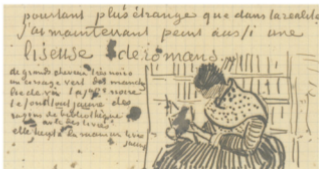 pourtant plus étrange que dans la réalité
j'ai maintenant peint aussi une
liseuse de romans
de grands cheveux très noirs
un corsage vert des manches
lie de vin la jupe noire
le fond tout jaune des
rayons de bibliothèque
avec des livres
elle tient en main un livre
jaune